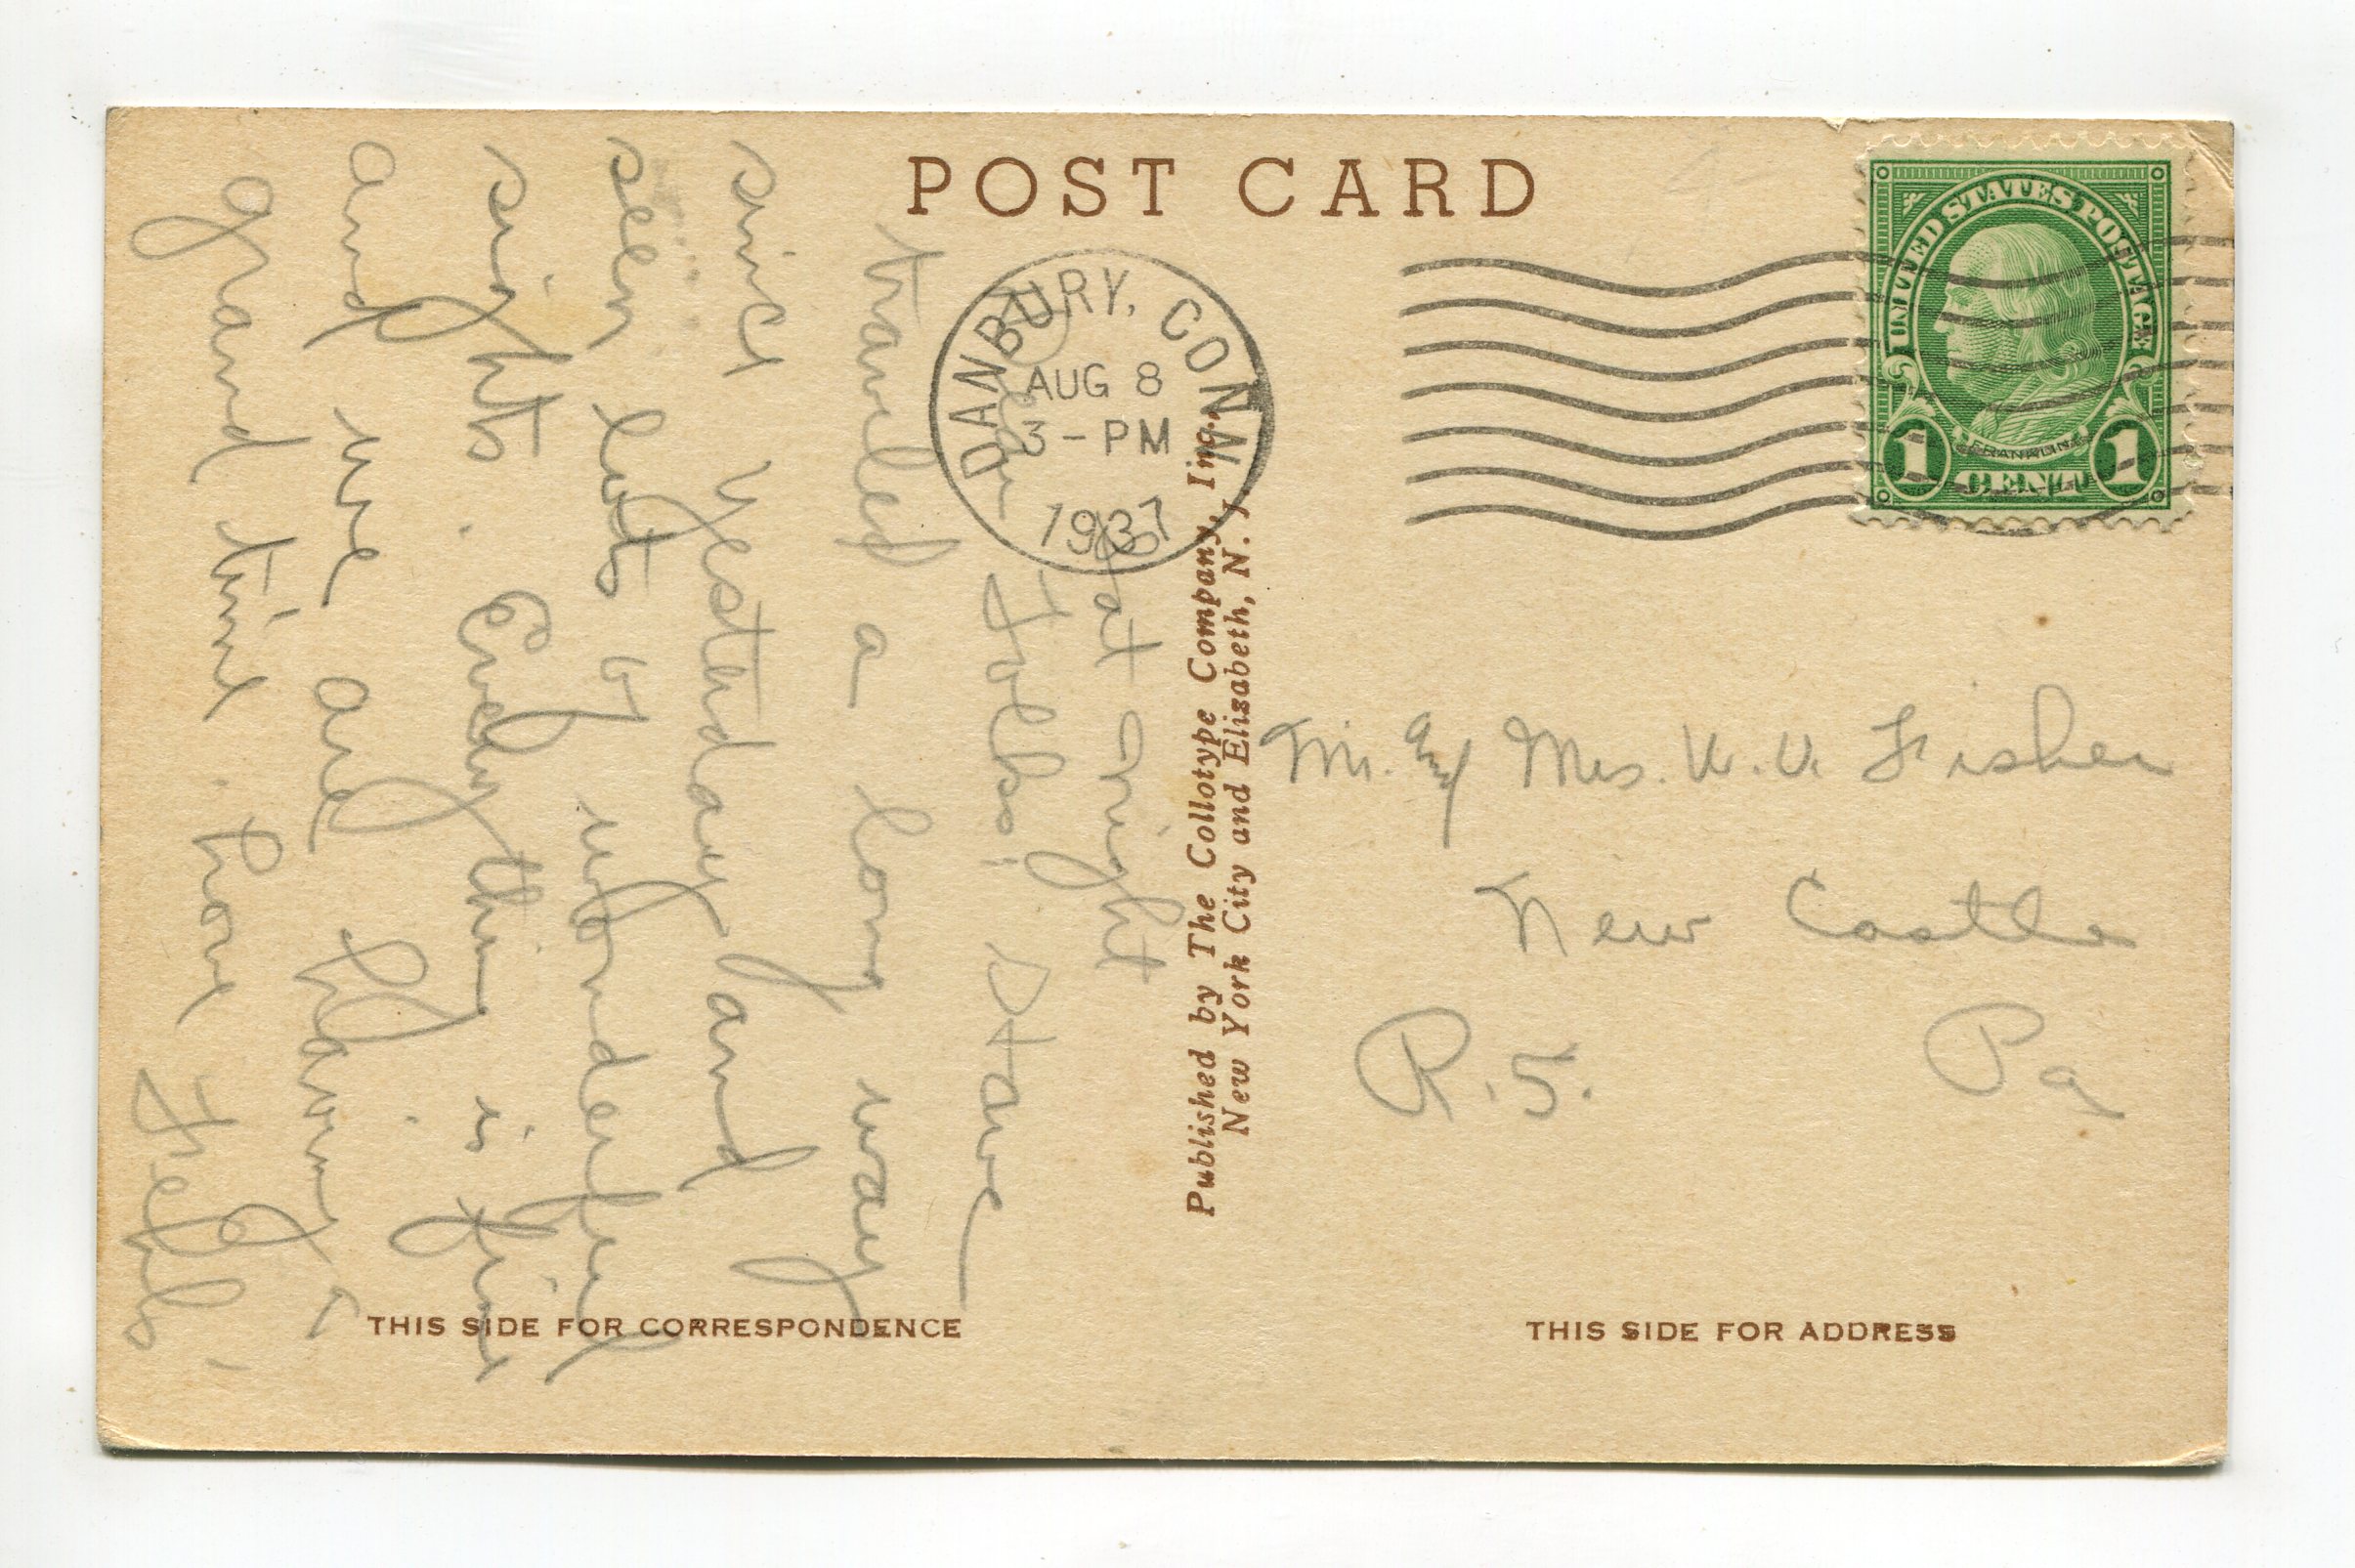 POST CARD
DANBURY, CONN.
AUG 8
3-PM
1937
UNITED STATES POSTAGE
FRANKLIN
1 CENT 1
at night
Dear Folks; Have
traveled a long way
since yesterday and
seen lots of wonderful
sights. Everything is fine
and we are having a
grand time. Love
Published by The Collotype Company, Inc.,
New York City and Elizabeth, N. J.
Mr. and Mrs. W. V. Fisher
New Castle
R.5. Pa
THIS SIDE FOR CORRESPONDENCE
THIS SIDE FOR ADDRESS